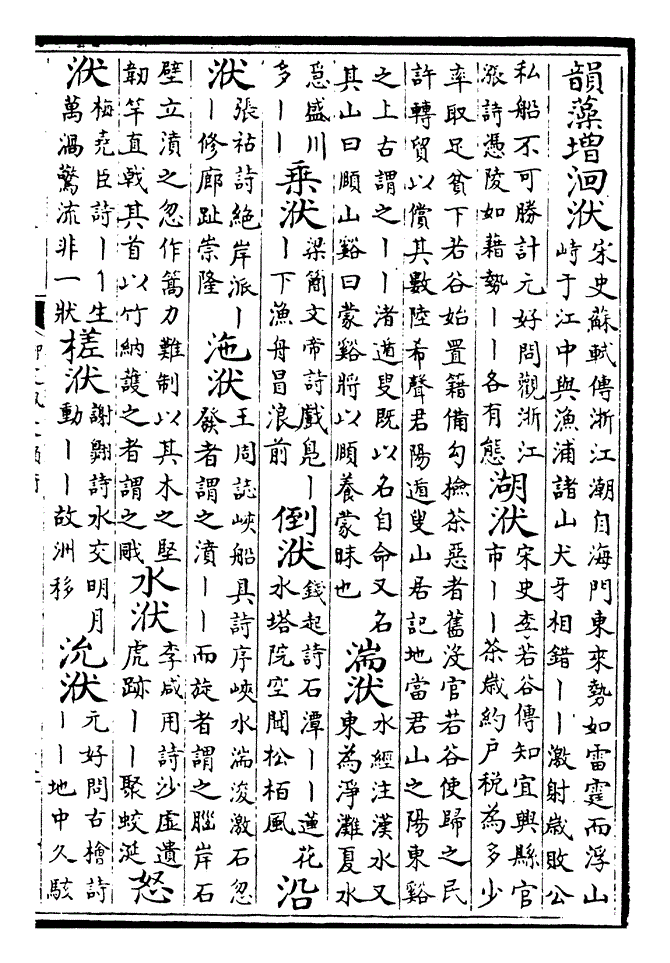 韻藻增洄洑
宋史蘇軾傳浙江潮自海門東來勢如雷霆而浮山
峙于江中與漁浦諸山犬牙相錯丨丨激射歲敗公
私船不可勝計元好問觀浙江
漲詩憑陵如藉勢丨丨各有態
湖洑
宋史李若谷傳知宜興縣官
市丨丨茶歲約戶税為多少
率取足貧下若谷始置籍備勾檢茶惡者舊没官若谷使歸之民
許轉貿以償其數陸希聲君陽遁叟山居記地當君山之陽東谿
之上古謂之丨丨渚遁叟既以名自命又名
其山曰頤山谿曰蒙谿將以頤養蒙昧也
湍洑
水經注漢水又
東為淨灘夏水
急盛川
多丨丨
乗洑
梁簡文帝詩戲鳧丨
丨下漁舟昌浪前
倒洑
錢起詩石潭丨丨蓮花
水塔院空聞松柏風
沿
洑
張祜詩絶岸派丨
丨修廊趾崇隆
沲洑
王周誌峽船具詩序峽水湍浚激石忽
發者謂之濆丨丨而旋者謂之腦岸石
壁立濆之忽作篙力難制以其木之堅
韌竿直戟其首以竹納護之者謂之戙
水洑
李咸用詩沙虛遺
虎跡丨丨聚蛟涎
怒
洑
梅堯臣詩丨丨生
萬渦驚流非一狀
槎洑
謝翺詩水交明月
動丨丨故洲移
沇洑
元好問古檜詩
丨丨地中久駭